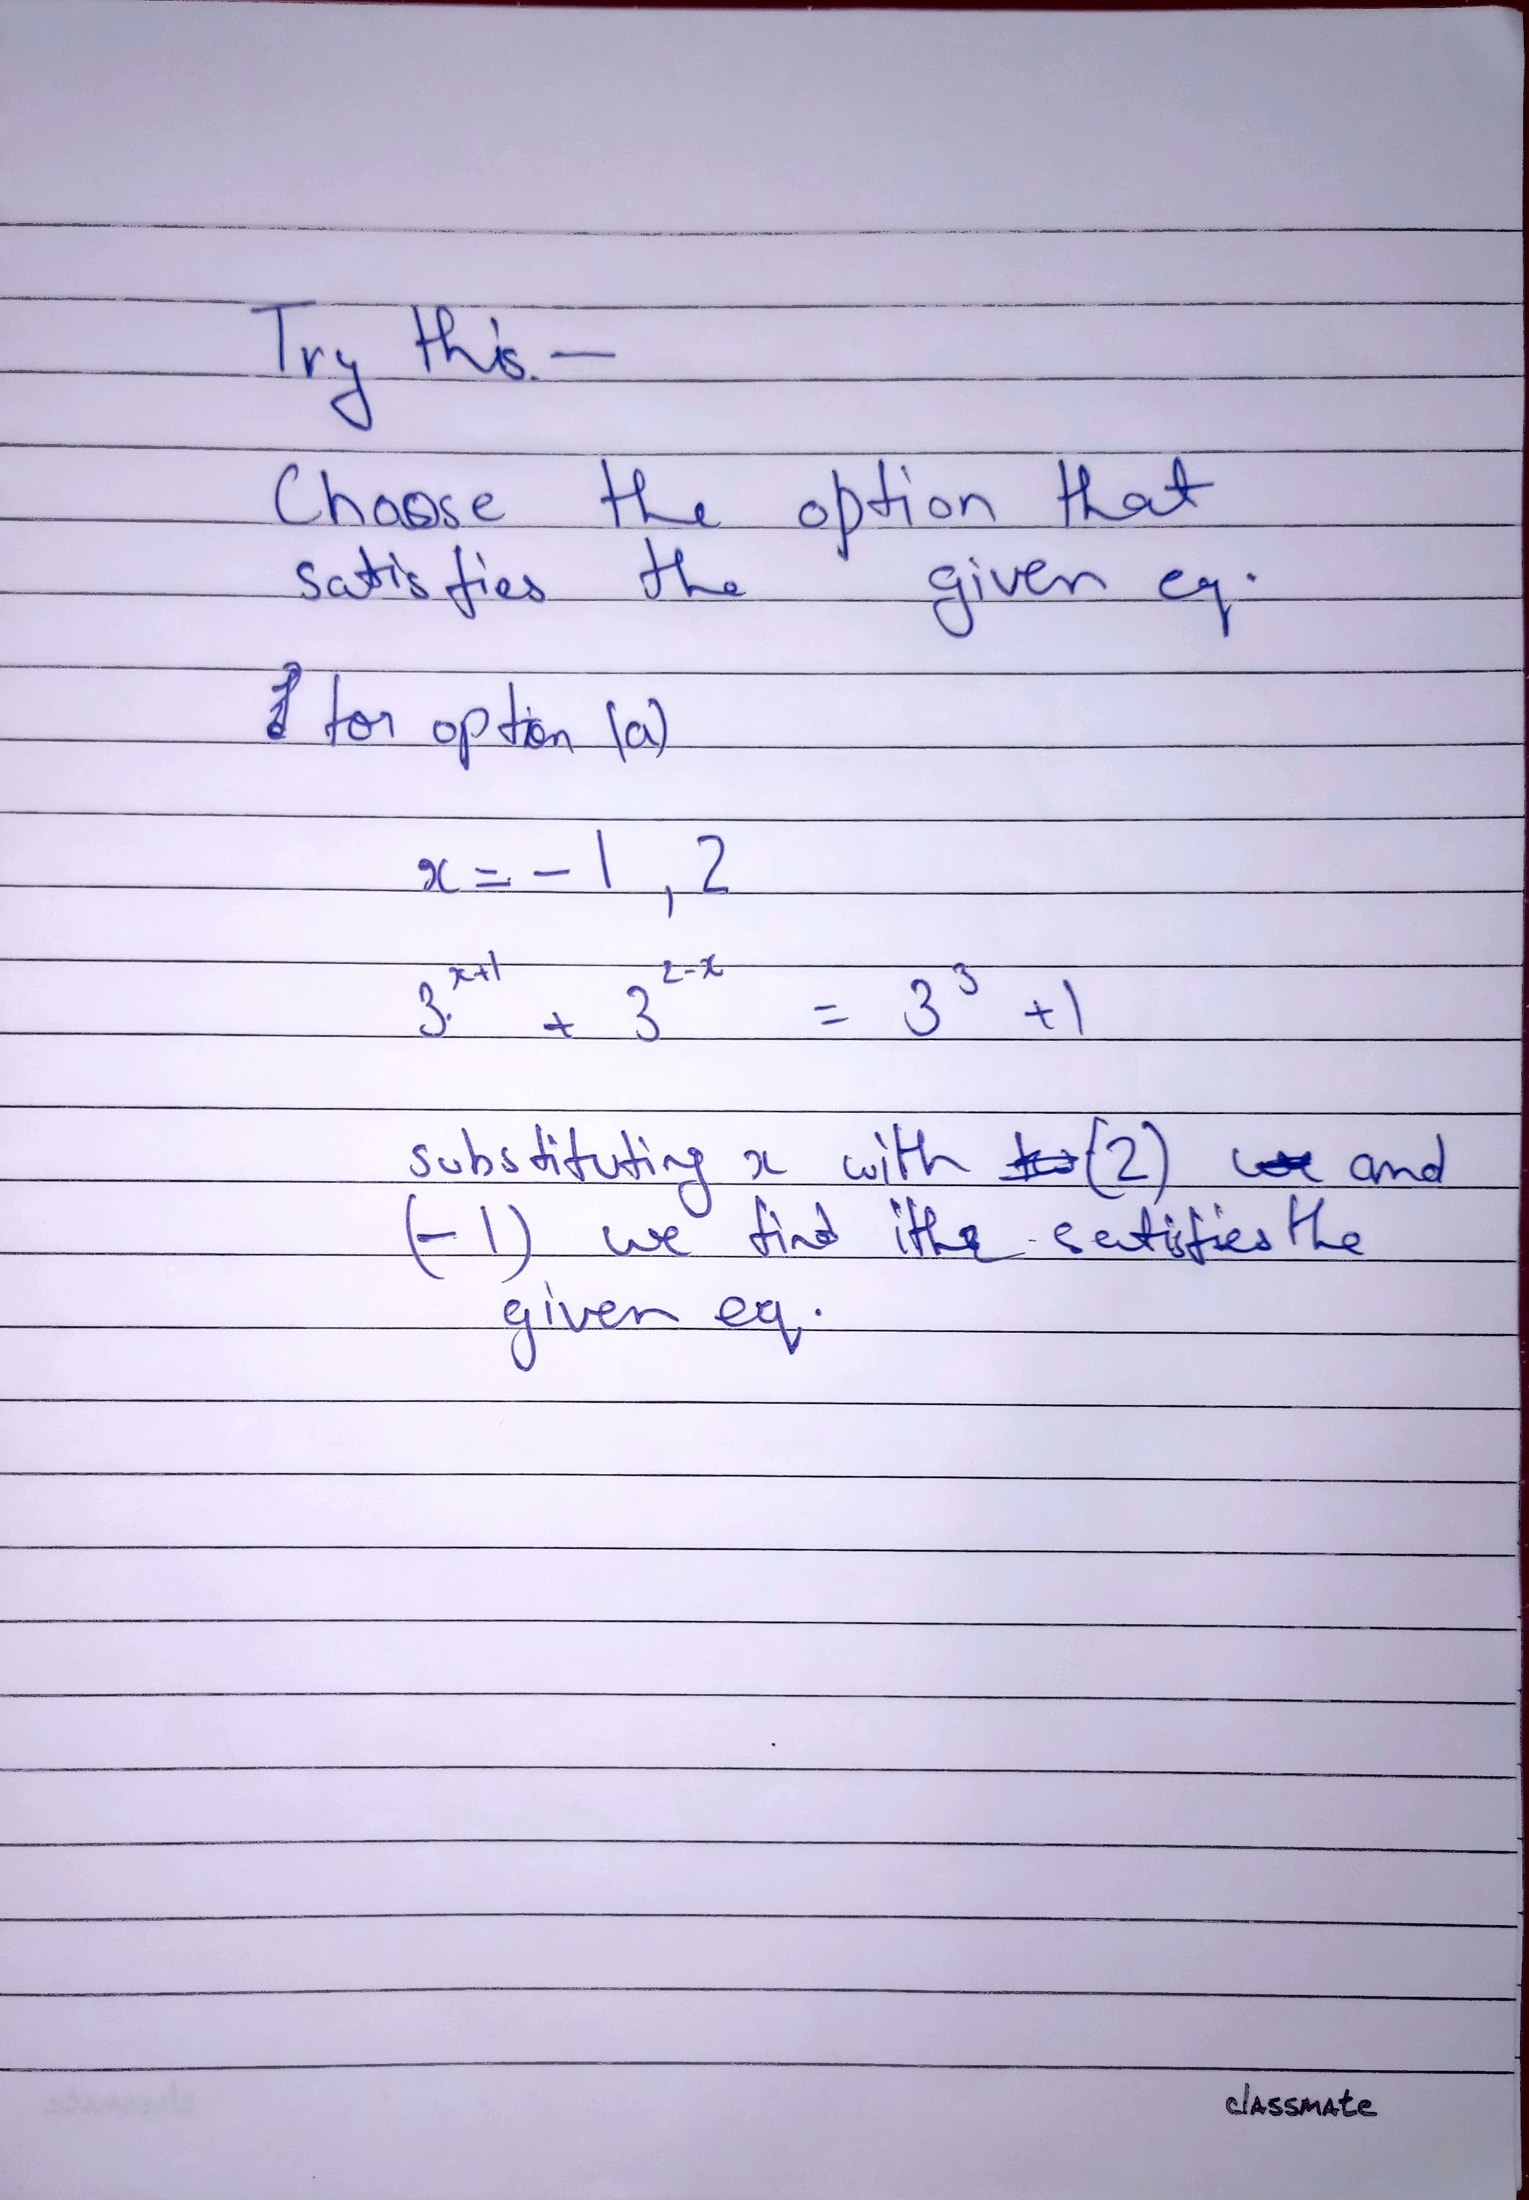 Try this. —
Choose the option that
satisfies the given eq.
for option (a)
x = -1, 2
3^{x+1} + 3^{2-x} = 3^3 + 1
substituting x with (2) and
(-1) we find satisfies the
given eq.
classmate